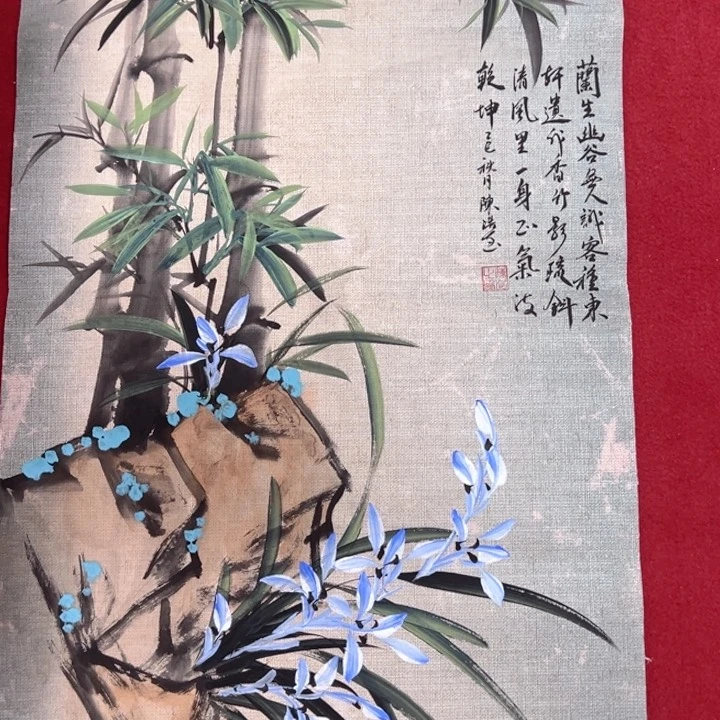 蘭生幽谷無人識客種東
軒遺我香竹影疏斜
清風里一身正氣
乾坤 乙巳秋月陳